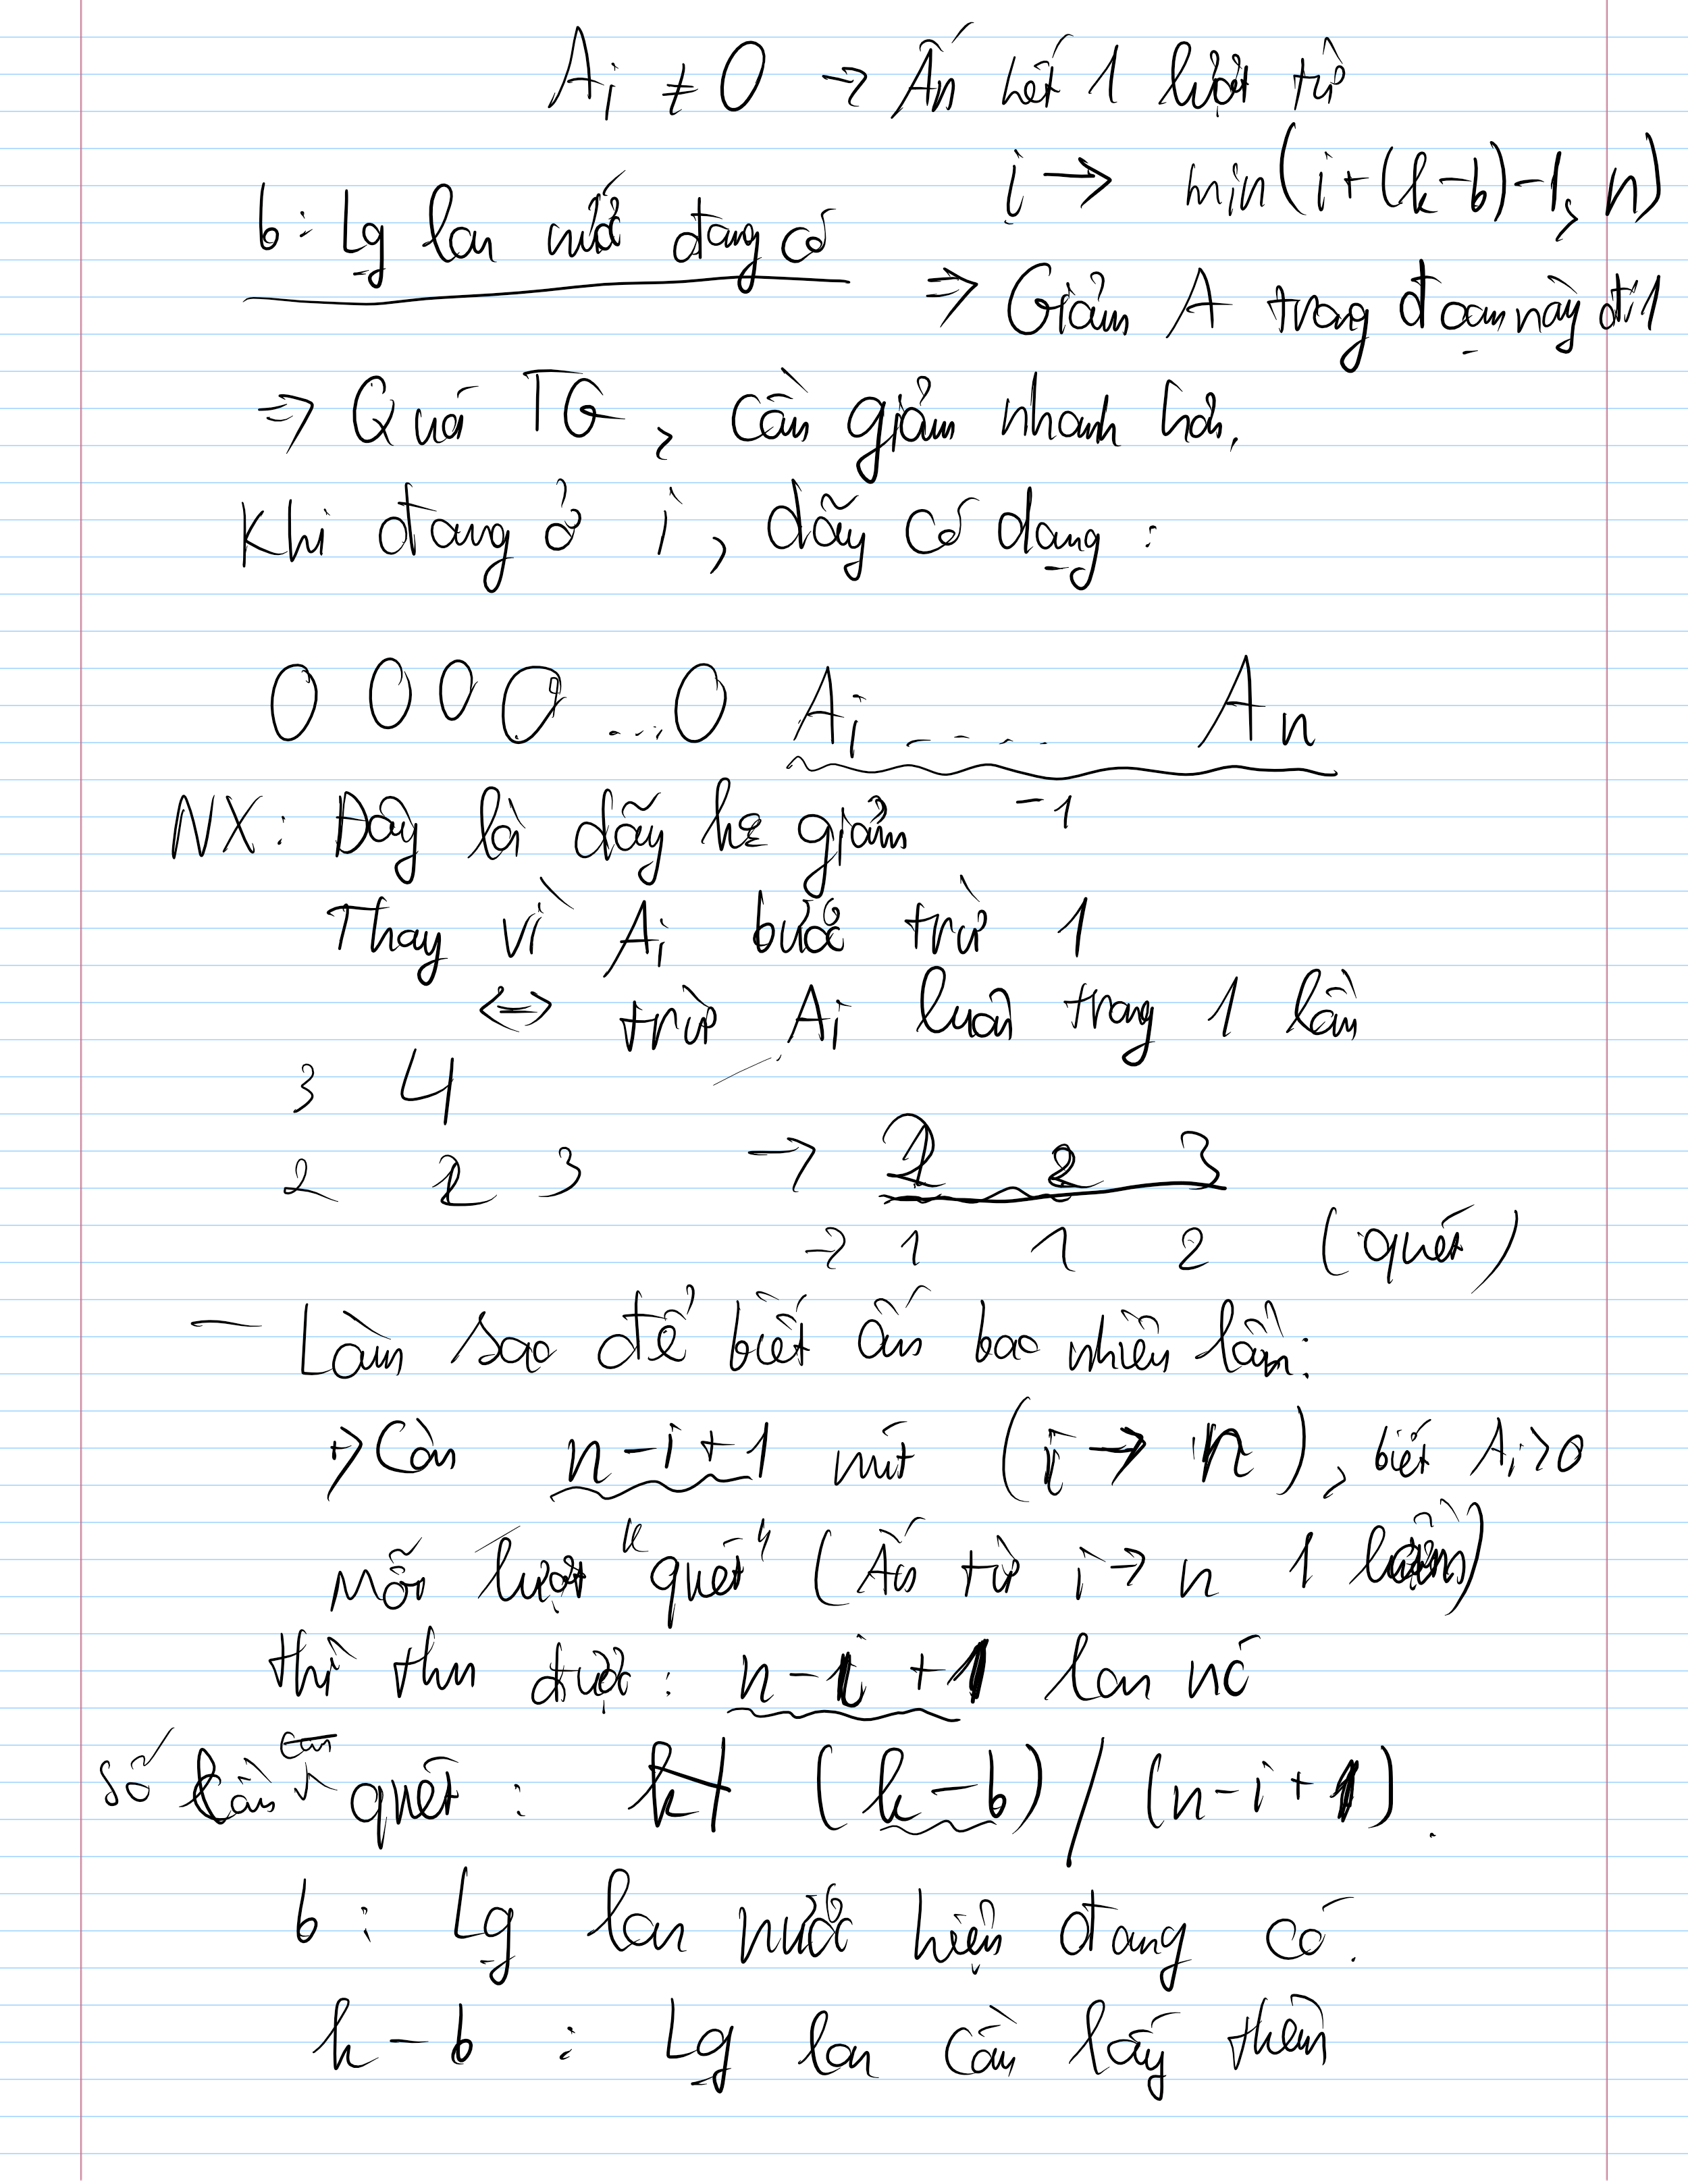 Ai ≠ 0 → Ấn hết 1 lượt từ
i → min(i+(k-b)-1, n)
b: Lg lon nước đang có
⇒ Giảm A trong đoạn này đi 1
⇒ Quá TG, cần giảm nhanh hơn.
Khi đang ở i, dãy có dạng:
0 0 0 0 ... 0 Ai ..... An
NX: Đây là dãy k giảm -1
Thay vì Ai bước trừ 1
⇔ trừ Ai luôn trong 1 lần
3 4
2 2 3 → 2 2 3
→ 1 1 2 (quét)
- Làm sao để biết ấn bao nhiêu lần:
→ Còn n-i+1 nút (i → n), biết Ai>0
Mỗi lượt "quét" (Ấn từ i → n 1 lần)
thì thu được: n-i+1 lon nc
số lần cần quét: (k-b)/(n-i+1).
b: Lg lon nước hiện đang có.
k-b: Lg lon cần lấy thêm